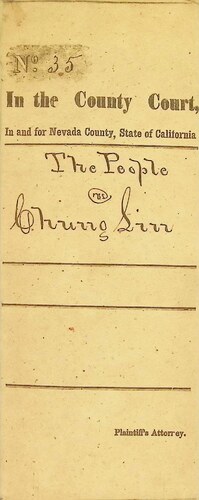 No. 35
In the County Court,
In and for Nevada County, State of California
The People
vs
Chung Linn
Plaintiff's Attorney.